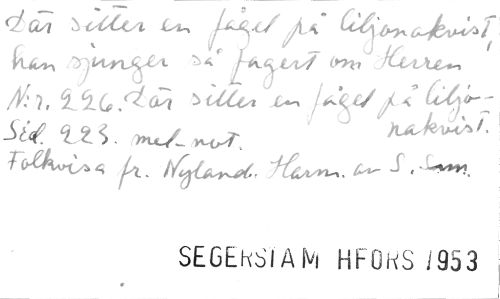 Där sitter en fågel på liljonakvist,
han sjunger så fagert om Herren
N:r. 226. Där sitter en fågel på liljo-
nakvist.
Sid. 223. mel-not.
Folkvisa fr. Nyland. Harm. av S.
SEGERSTAM HFORS 1953